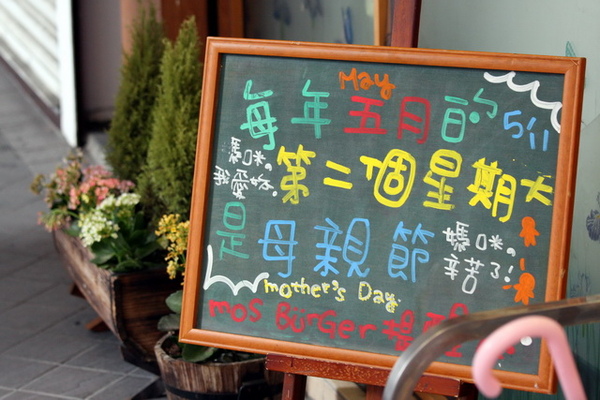 May
每年五月的 5/11
媽咪
我愛妳
第二個星期天
是母親節
媽咪
辛苦了!
mother's Day.
mos Burger 提醒